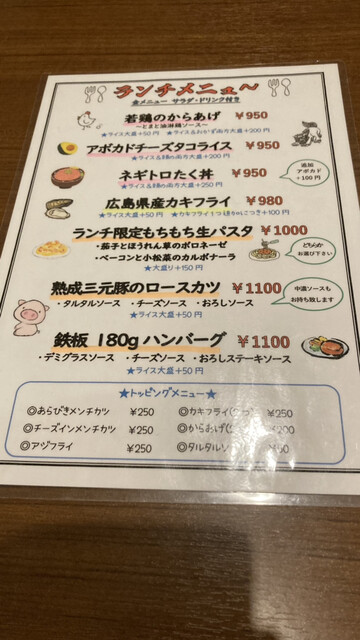 ランチメニュ〜
全メニュー サラダ・ドリンク付き
若鶏のからあげ ￥950
〜とまと油淋鶏ソース〜
★ライス大盛＋50円 ★ライス&おかず両方大盛＋200円
アボカドチーズタコライス ￥950
★ライス&具の両方大盛＋200円
ネギトロたく丼 ￥950
★ライス&具の両方大盛＋200円
追加
アボカド
＋100円
広島県産カキフライ ￥980
★ライス大盛＋50円 ★カキフライ1つ
ランチ限定もちもち生パスタ ￥1000
・茄子とほうれん草のボロネーゼ
・ベーコンと小松菜のカルボナーラ
★大盛り＋150円
どちらか
お選び下さい
熟成三元豚のロースカツ ￥1100
・タルタルソース ・チーズソース ・おろしソース
★ライス大盛＋50円
中濃ソースも
お持ち致します
鉄板 180g ハンバーグ ￥1100
・デミグラスソース ・チーズソース ・おろしステーキソース
★ライス大盛＋50円
★トッピングメニュー★
◎あらびきメンチカツ ￥250 ◎カキフライ
◎チーズインメンチカツ ￥250 ◎からあげ
◎アジフライ ￥250 ◎タルタルソ